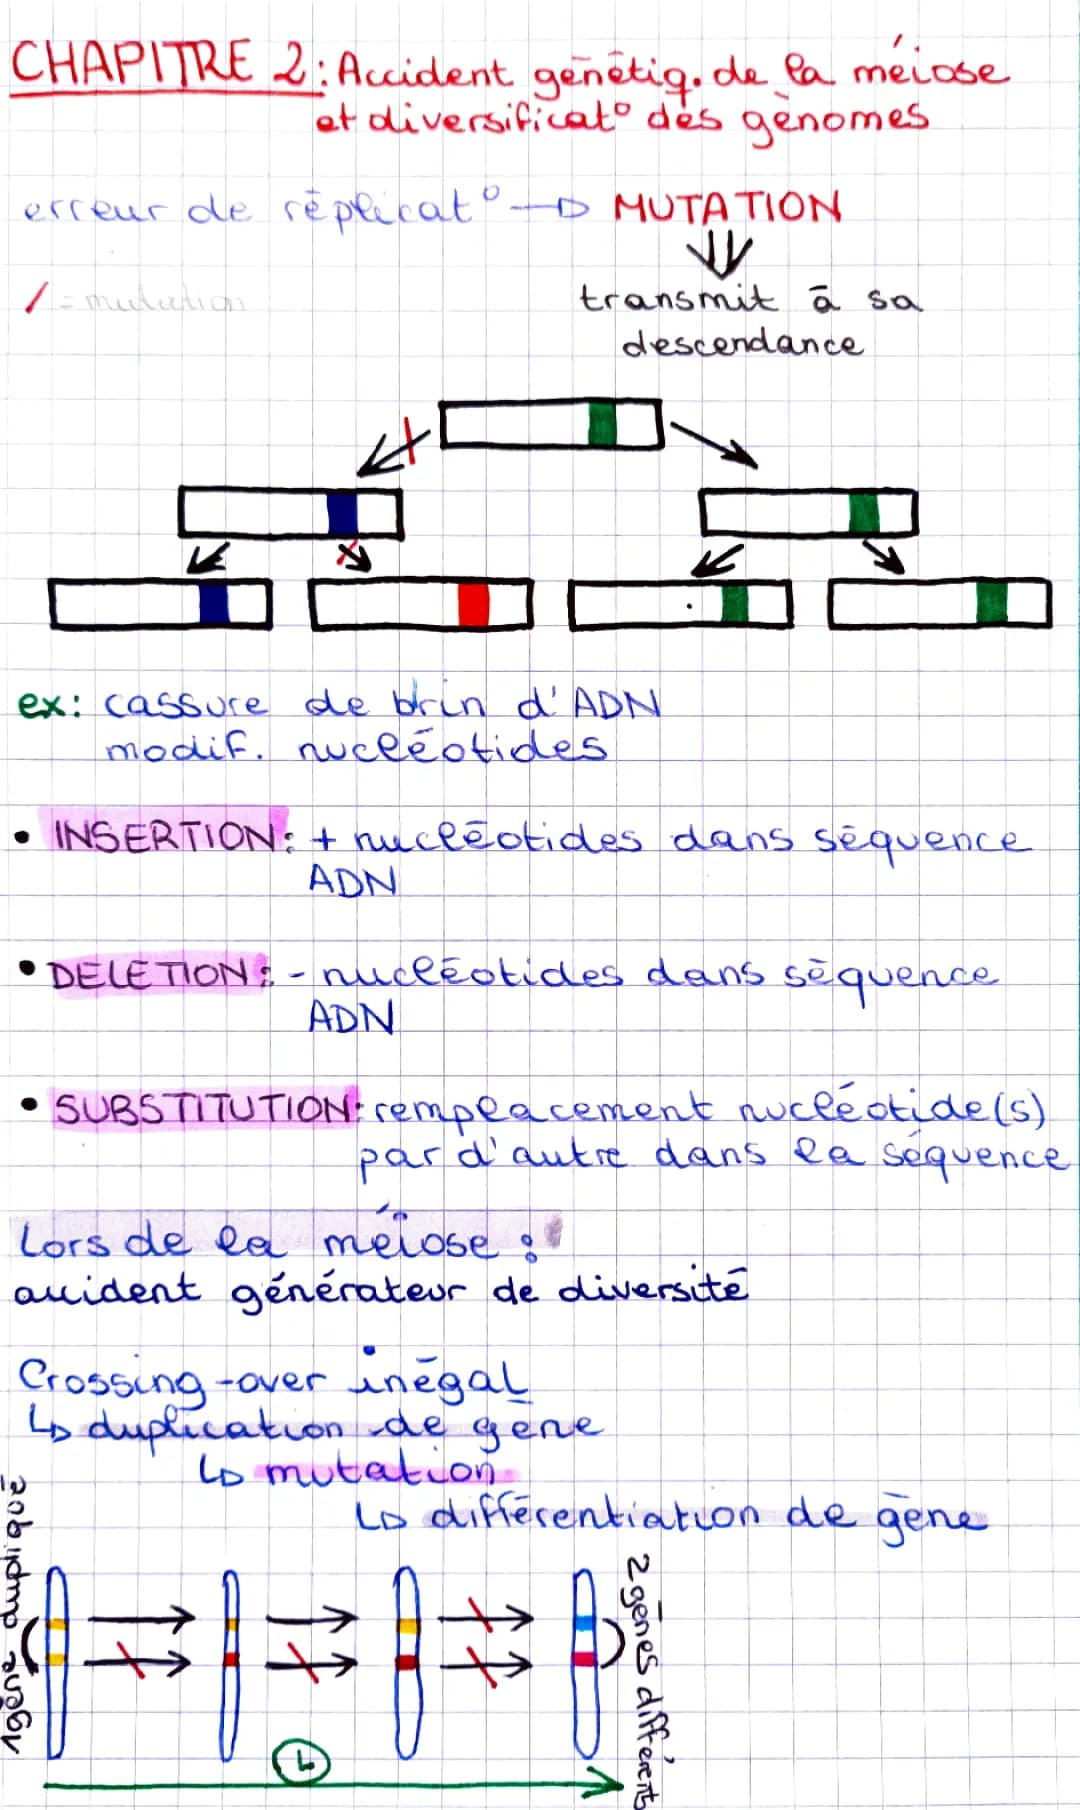 CHAPITRE 2 : Accident génétiq. de la méiose
et diversificat° des génomes
erreur de réplicat° → MUTATION
/ = mutation
transmit à sa
descendance
ex: cassure de brin d'ADN
modif. nucléotides
• INSERTION: + nucléotides dans séquence
ADN
• DELETION: - nucléotides dans séquence
ADN
• SUBSTITUTION: remplacement nucléotide(s)
par d'autre dans la séquence
Lors de la méiose :
accident générateur de diversité
Crossing-over inégal
↳ duplication de gène
↳ mutation
↳ différentiation de gène
1 gène dupliqué
2 gènes différents